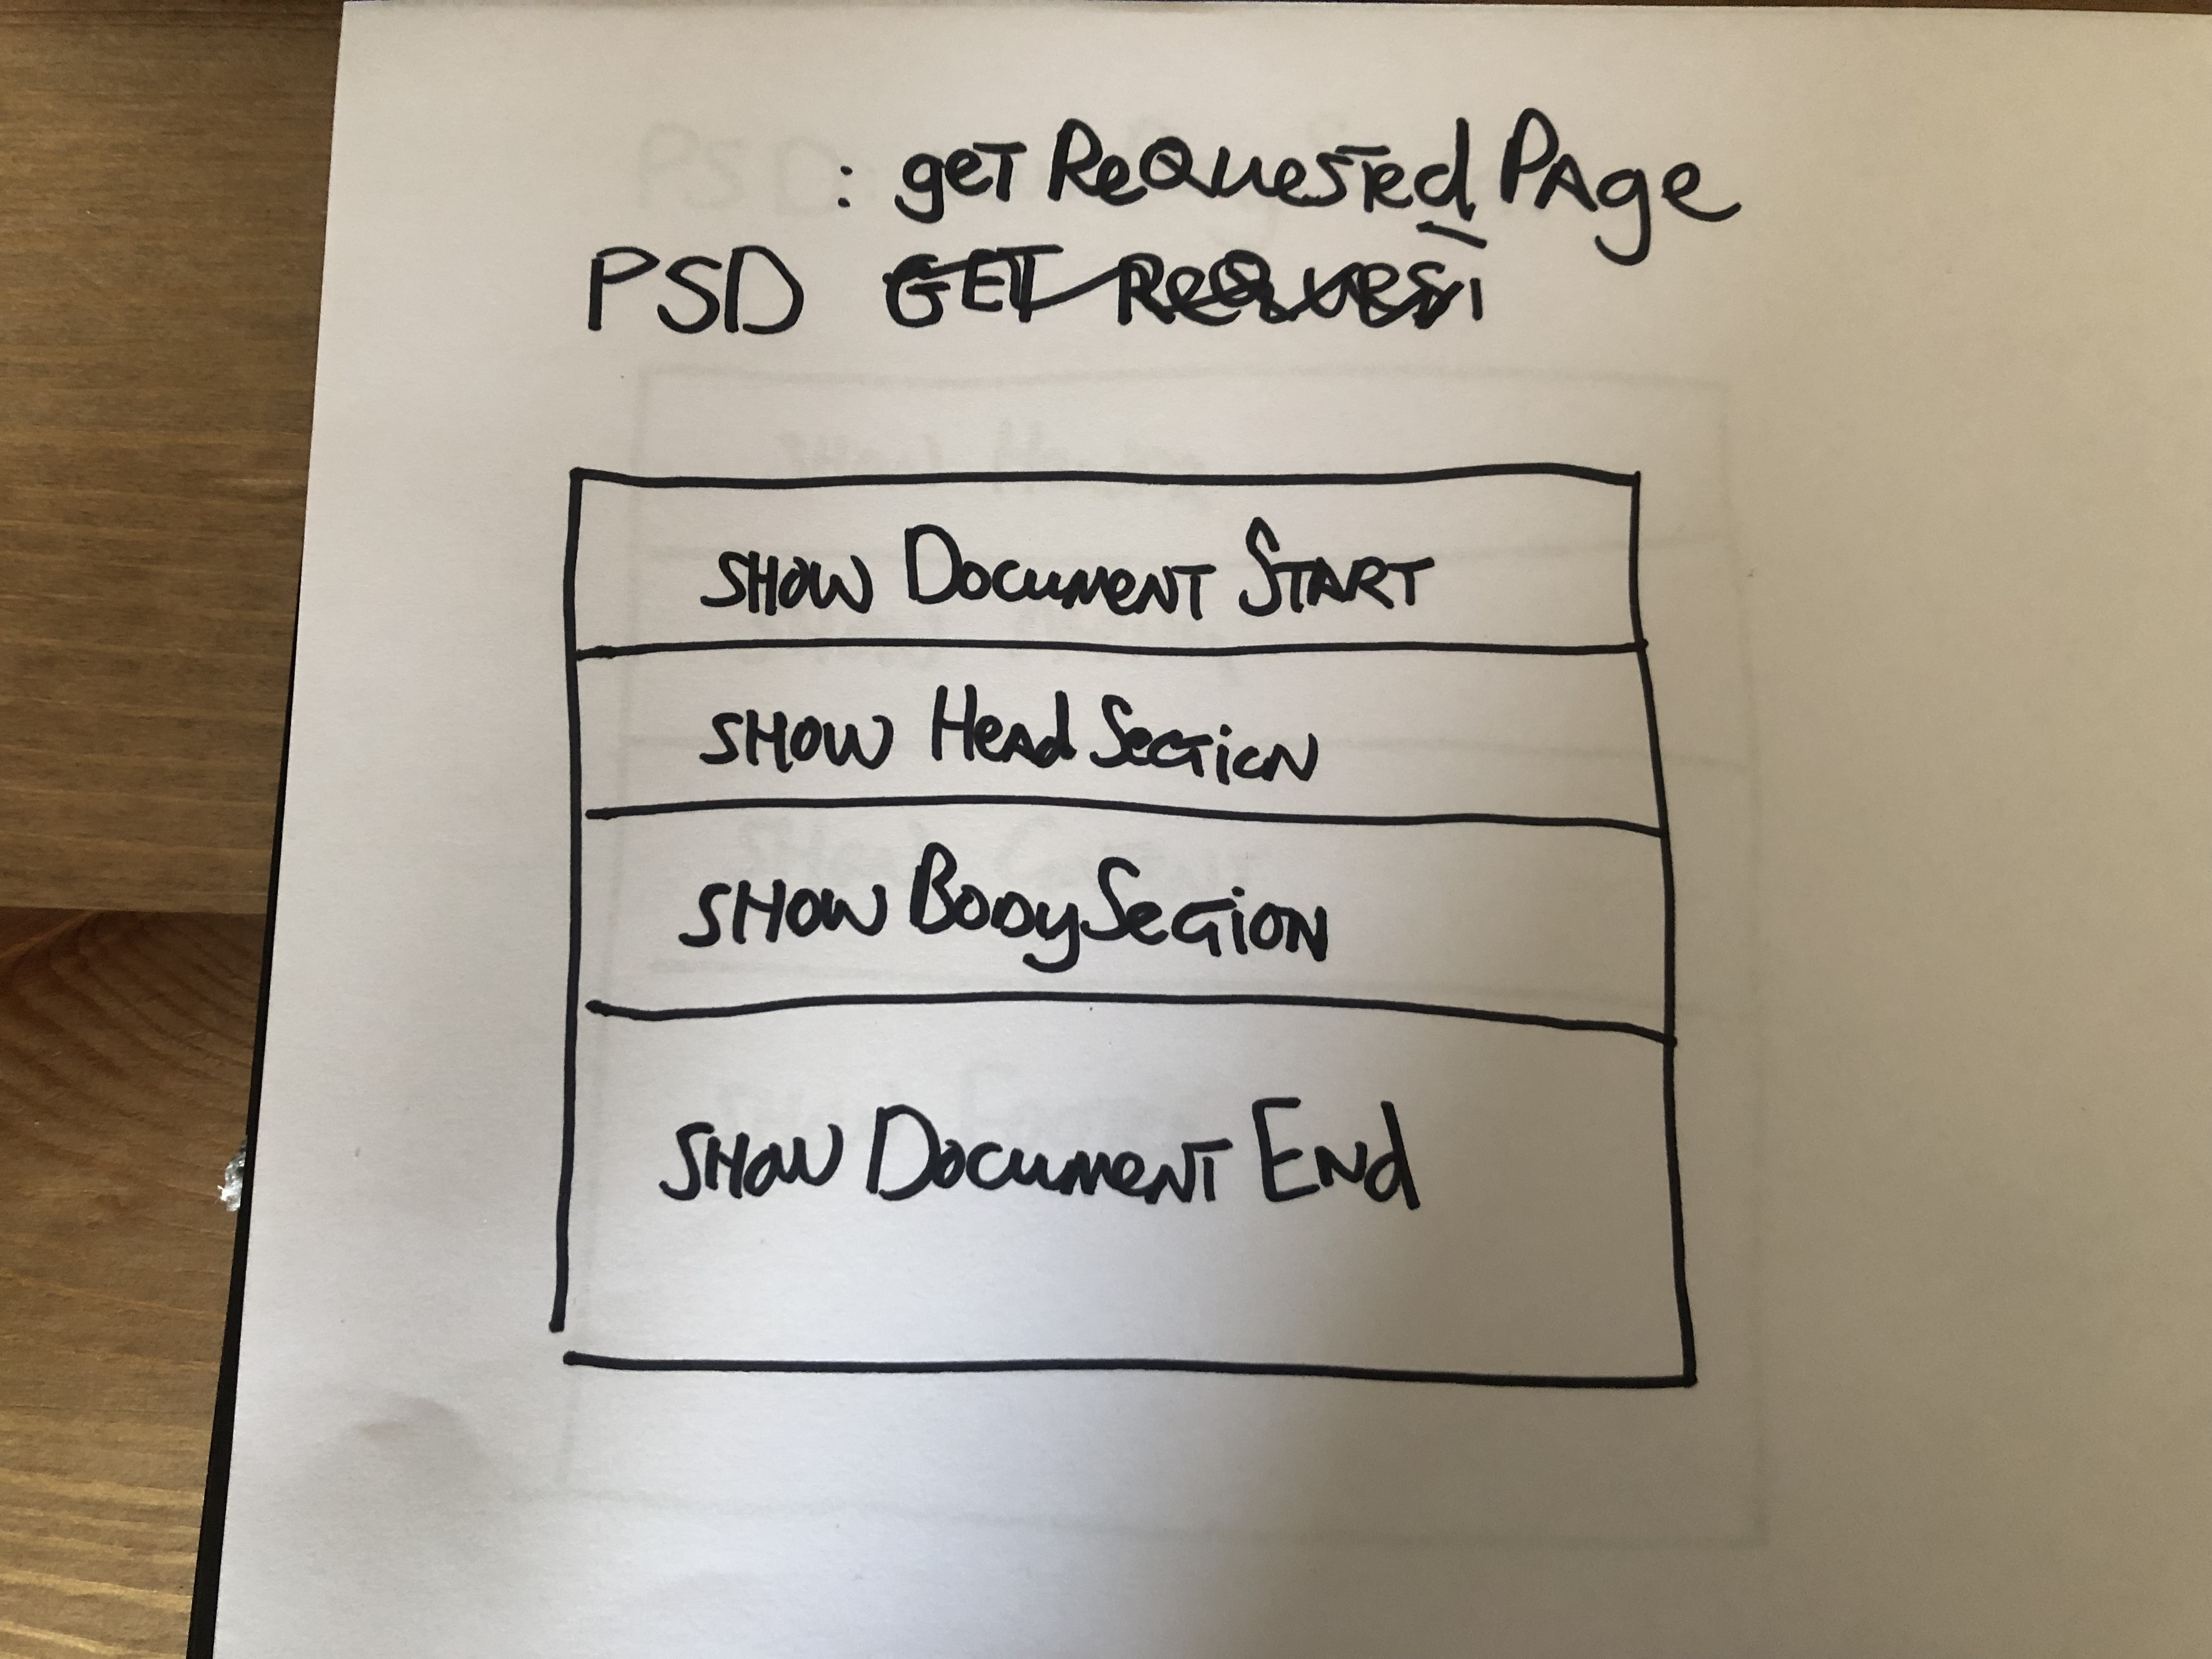 : getRequested Page
PSD
Show Document Start
Show Head Section
Show Body Section
Show Document End